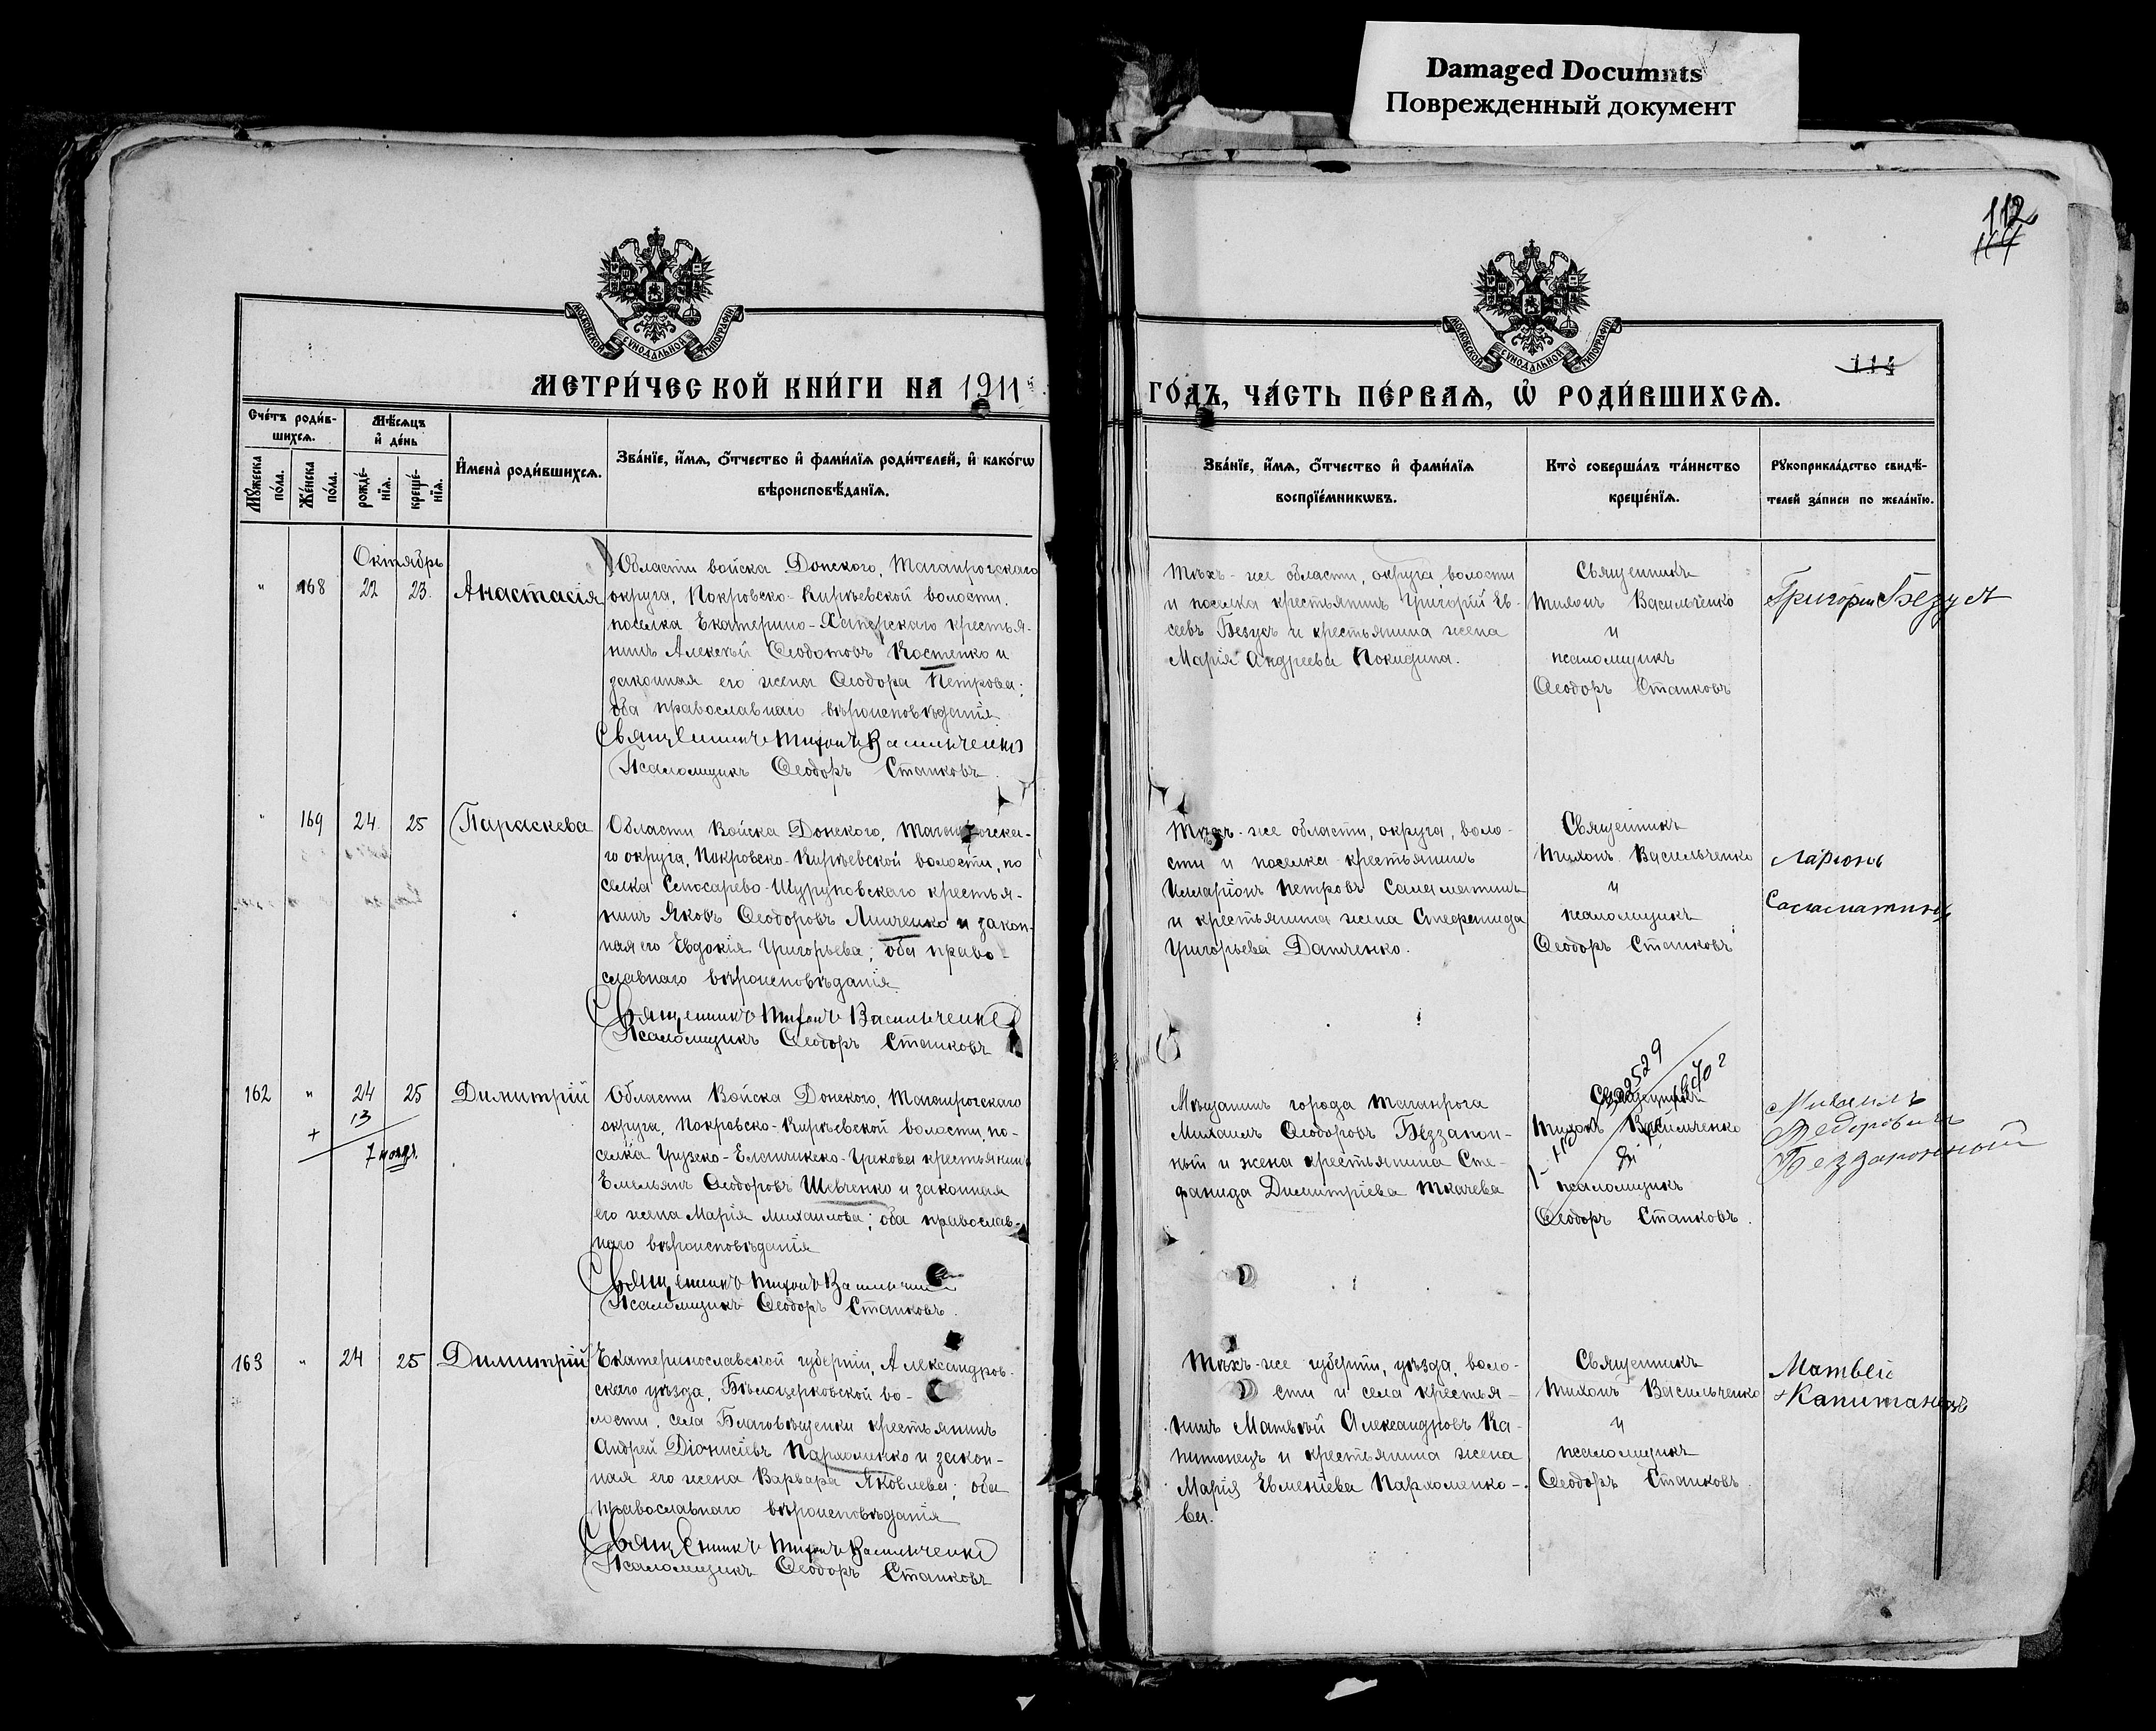 Damaged Documnts
Поврежденный документ
112
114
МОСКОВСКОЙ СѴНОДАЛЬНОЙ ТИПОГРАФІИ
МОСКОВСКОЙ СѴНОДАЛЬНОЙ ТИПОГРАФІИ
114
МЕТРИ́ЧЕСКОЙ КНИ́ГИ НА 1911й
ГО́ДЪ, ЧА́СТЬ ПЕ́РВАѦ, Ѡ҆ РОДИ́ВШИХСѦ.
Сче́тъ роди́в-
шихсѧ.
Мꙋ́жеска
по́ла.
Же́нска
по́ла.
Мѣ́сѧцъ
и҆ де́нь
рожде́-
нїѧ.
креще́-
нїѧ.
И҆мена̀ роди́вшихсѧ.
Зва́нїе, и҆́мѧ, ѻ҆́тчество и҆ фами́лїѧ роди́телей, и҆ како́гѡ
вѣроисповѣ́данїѧ.
Зва́нїе, и҆́мѧ, ѻ҆́тчество и҆ фами́лїѧ
воспрїе́мникѡвъ.
Кто̀ соверша́лъ та́инство
креще́нїѧ.
Рꙋкоприкла́дство свидѣ́-
телей за́писи по жела́нїю.
Октябрь
" 168 22 23. Анастасія
Области войска Донского, Таганрогскаго
округа, Покровско-Кирѣевской волости,
поселка Екатерино-Хаперскаго крестья-
нинъ Алексѣй Ѳеодотовъ Костенко и
законная его жена Ѳеодора Петрова;
оба православнаго вѣроисповѣданія
Священникъ Тихонъ Васильченко
Псаломщикъ Ѳеодоръ Станковъ.
Тѣхъ-же области, округа, волости
и поселка крестьянинъ Григорій Ев-
сеевъ Безусъ и крестьянина жена
Марія Андреева Покидина.
Священникъ
Тихонъ Васильченко
и
псаломщикъ
Ѳеодоръ Станковъ
Григорий Безус
" 169 24 25 Параскева
Области Войска Донского, Таганрогска-
го округа, Покровско-Кирѣевской волости, по
селка Слюсарево-Шуруповскаго крестья-
нинъ Яковъ Ѳеодоровъ Линченко и закон-
ная его Евдокія Григорьева; оба право-
славнаго вѣроисповѣданія.
Священникъ Тихонъ Васильченко
Псаломщикъ Ѳеодоръ Станковъ
Тѣхъ-же области, округа, воло-
сти и поселка крестьянинъ
Илларіонъ Петровъ Саламатинъ
и крестьянина жена Стефанида
Григорьева Данченко.
Священникъ
Тихонъ Васильченко
и
псаломщикъ
Ѳеодоръ Станковъ
Ларионъ
Саламатинъ
162 " 24 25 Димитрій
13
+
7 нояб.
Области Войска Донского, Таганрогскаго
округа, Покровско-Кирѣевской волости, по-
селка Грузско-Еланчикско-Грекова крестьянинъ
Емельянъ Ѳеодоровъ Шевченко и законная
его жена Марія Михаилова; оба православ-
наго вѣроисповѣданія
Священникъ Тихонъ Васильченко
Псаломщикъ Ѳеодоръ Станковъ.
Мѣщанинъ города Таганрога
Михаилъ Ѳеодоровъ Беззапон-
ный и жена крестьянина Сте-
фанида Димитріева Ткачева
2529
Священникъ
Тихонъ Васильченко
и
псаломщикъ
Ѳеодоръ Станковъ.
Михаилъ
Федоровичъ
Беззапонный
163 " 24 25 Димитрій
Екатеринославской губерніи, Александров-
скаго уѣзда, Бѣлоцерковской во-
лости, села Благовѣщенки крестьянинъ
Андрей Діонисіевъ Пархоменко и закон-
ная его жена Варвара Яковлева; оба
православнаго вѣроисповѣданія
Священникъ Тихонъ Васильченко
Псаломщикъ Ѳеодоръ Станковъ
Тѣхъ-же губерніи, уѣзда, воло-
сти и села крестья-
нинъ Матвѣй Александровъ Ка-
питонецъ и крестьянина жена
Марія Евменіева Пархоменко-
ва.
Священникъ
Тихонъ Васильченко
и
псаломщикъ
Ѳеодоръ Станковъ
Матвей